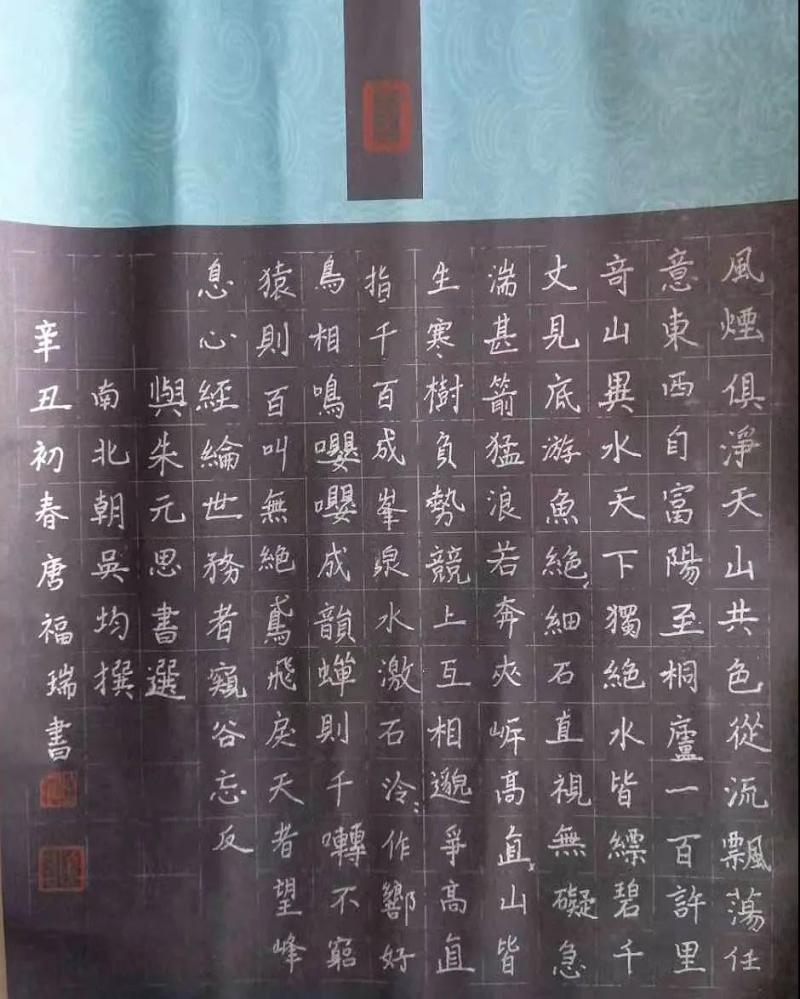 風煙俱淨天山共色從流飄蕩任
意東西自富陽至桐廬一百許里
奇山異水天下獨絕水皆縹碧千
丈見底游魚絕細石直視無礙急
湍甚箭猛浪若奔夾岸高直山皆
生寒樹負勢競上互相邈爭高直
指千百成峯泉水激石泠作響好
鳥相鳴嚶嚶成韻蟬則千囀不窮
猿則百叫無絕鳶飛戾天者望峰
息心經綸世務者窺谷忘反
與朱元思書選
南北朝吳均撰
辛丑初春唐福瑞書